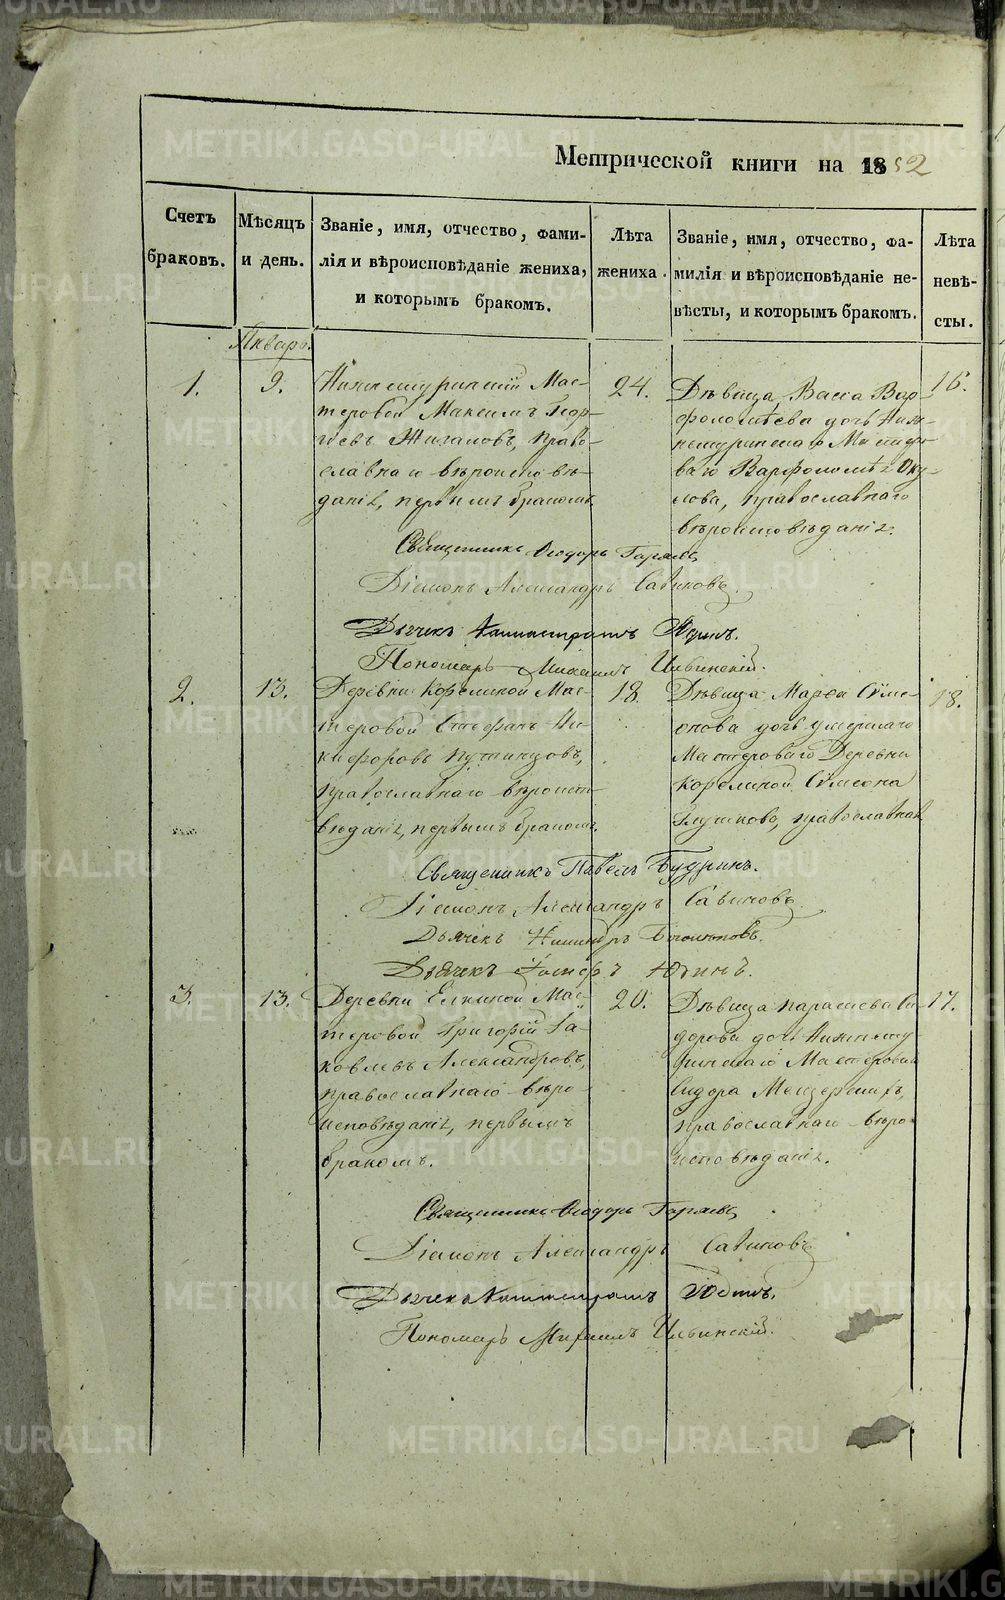 METRIKI.GASO-URAL.RU
Метрической книги на 1852
Счетъ браковъ.
Мѣсяцъ и день.
Званіе, имя, отчество, фами-
лія и вѣроисповѣданіе жениха,
и которымъ бракомъ.
Лѣта жениха.
Званіе, имя, отчество, фа-
милія и вѣроисповѣданіе не-
вѣсты, и которымъ бракомъ.
Лѣта невѣ-
сты.
Январь.
1.
9.
Мас-
теровой Максимъ Геор-
гіевъ Жигаловъ, право-
славнаго вѣроисповѣ-
данія, первымъ бракомъ.
24.
Дѣвица Васса Вар-
фоломѣева дочь Ниж-
Варфоломѣя Оку-
лова, православнаго
вѣроисповѣданія.
16.
Священникъ Ѳеодоръ
Діаконъ Александръ Савиновъ.
Дьячекъ
Пономарь Михаилъ Ильинскій.
2.
13.
Деревни Корелиной Мас-
теровой Стефанъ Ни-
кифоровъ Путинцовъ,
православнаго вѣроиспо-
вѣданія, первымъ бракомъ.
18.
Дѣвица Марѳа Сѵме-
онова дочь умершаго
Мастероваго Деревни
Корелиной Сѵмеона
Глушкова, православнаго
18.
Священникъ Павелъ Будринъ.
Діаконъ Александръ Савиновъ
Дьячекъ
Дьячекъ Юдинъ.
3.
13.
Деревни Елкиной Мас-
теровой Григорій Іа-
ковлевъ Александровъ,
православнаго вѣро-
исповѣданія, первымъ
бракомъ.
20.
Дѣвица Параскева Си-
дорова дочь Нижнету-
ринскаго Мастероваго
Сидора
православнаго вѣро-
исповѣданія.
17.
Священникъ Ѳеодоръ
Діаконъ Александръ Савиновъ
Дьячекъ
Пономарь Михаилъ Ильинскій.